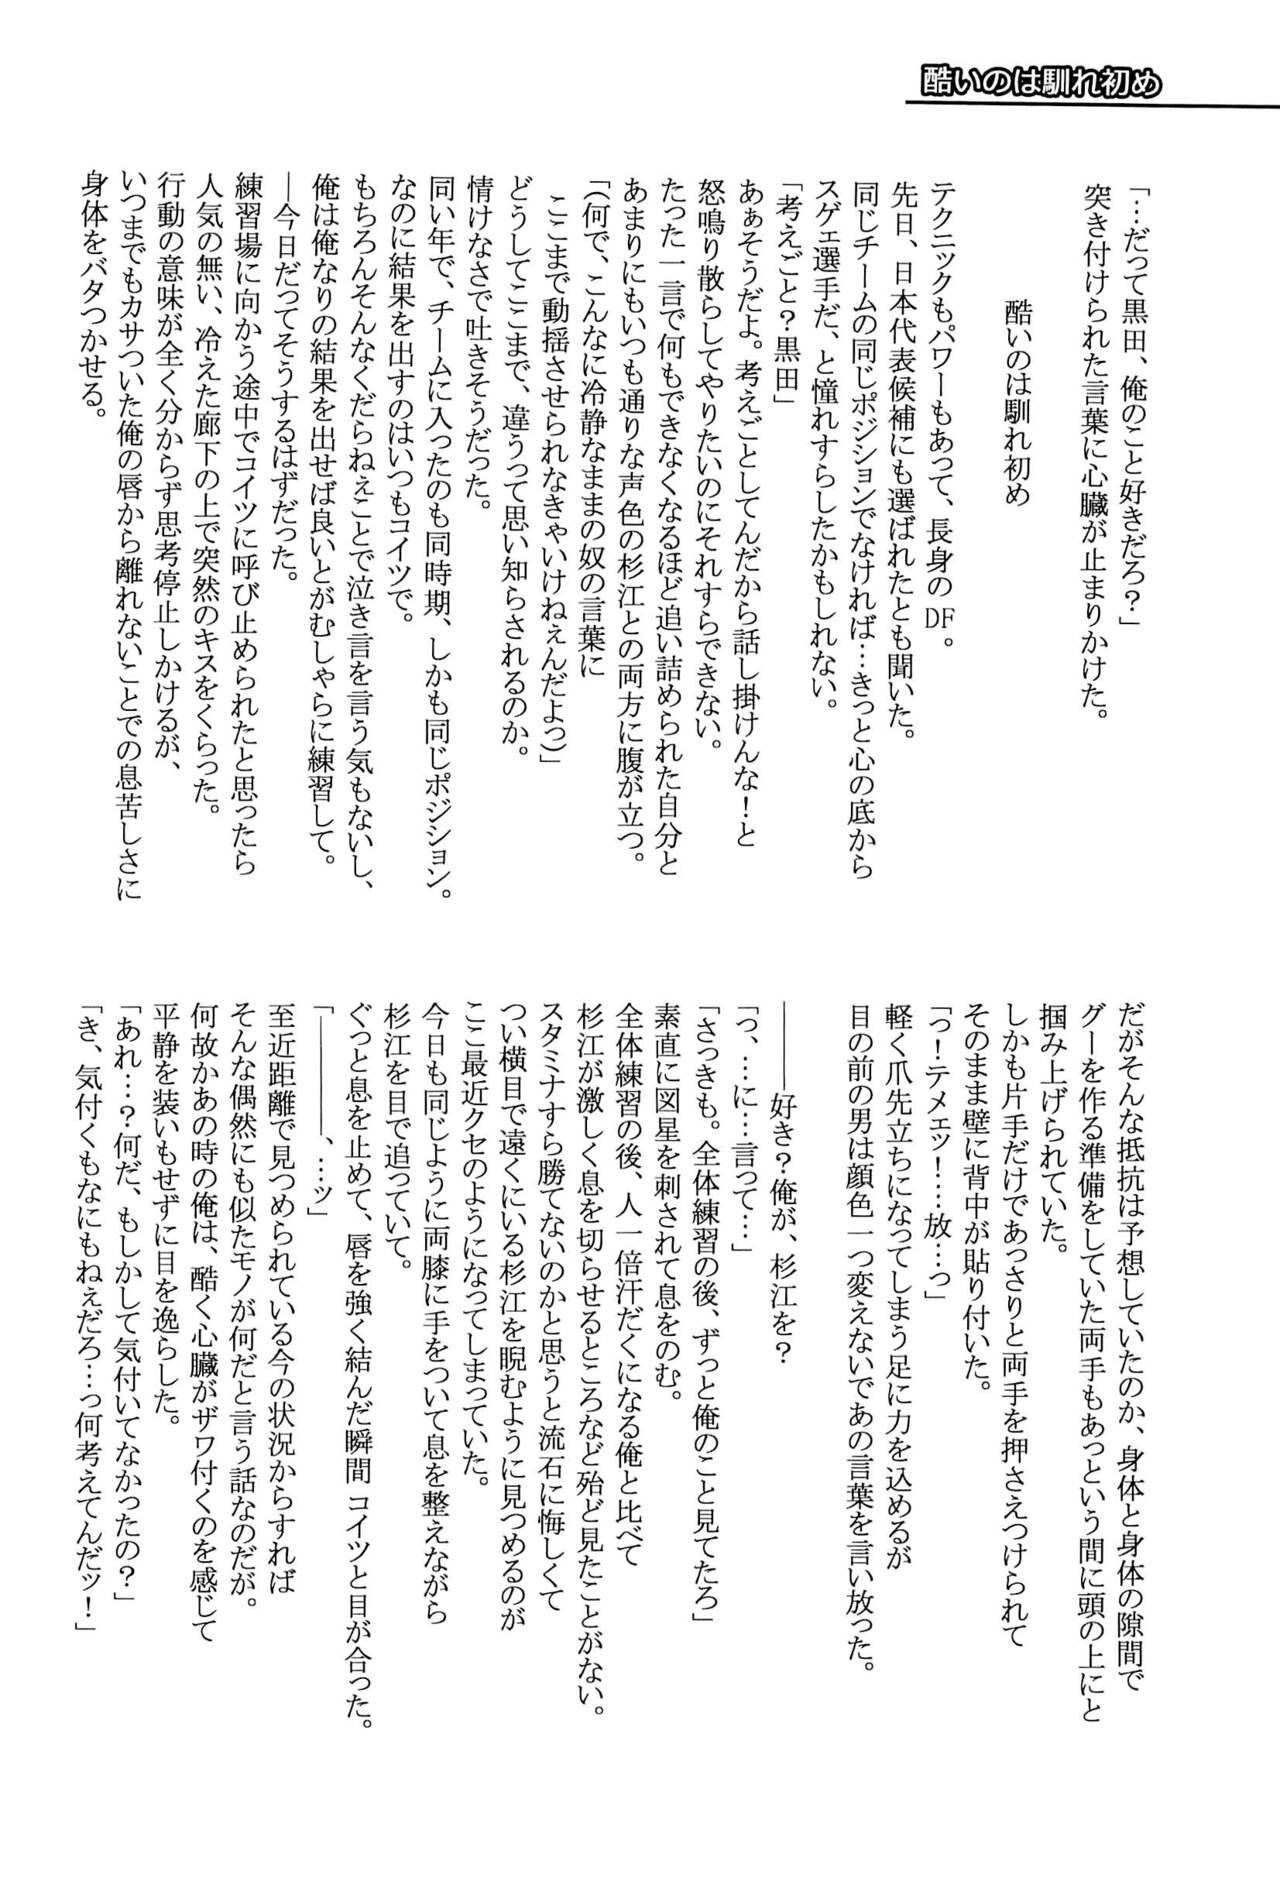 酷いのは馴れ初め
「…だって黒田、俺のこと好きだろ？」
突き付けられた言葉に心臓が止まりかけた。
酷いのは馴れ初め
テクニックもパワーもあって、長身のDF。
先日、日本代表候補にも選ばれたとも聞いた。
同じチームの同じポジションでなければ…きっと心の底から
スゲェ選手だ、と憧れすらしたかもしれない。
「考えごと？黒田」
あぁそうだよ。考えごとしてんだから話し掛けんな！と
怒鳴り散らしてやりたいのにそれすらできない。
たった一言で何もできなくなるほど追い詰められた自分と
あまりにもいつも通りな声色の杉江との両方に腹が立つ。
「（何で、こんなに冷静なままの奴の言葉に
ここまで動揺させられなきゃいけねぇんだよっ）」
どうしてここまで、違うって思い知らされるのか。
情けなさで吐きそうだった。
同い年で、チームに入ったのも同時期、しかも同じポジション。
なのに結果を出すのはいつもコイツで。
もちろんそんなくだらねぇことで泣き言を言う気もないし、
俺は俺なりの結果を出せば良いとがむしゃらに練習して。
―今日だってそうするはずだった。
練習場に向かう途中でコイツに呼び止められたと思ったら
人気の無い、冷えた廊下の上で突然のキスをくらった。
行動の意味が全く分からず思考停止しかけるが、
いつまでもカサついた俺の唇から離れないことでの息苦しさに
身体をバタつかせる。
だがそんな抵抗は予想していたのか、身体と身体の隙間で
グーを作る準備をしていた両手もあっという間に頭の上にと
掴み上げられていた。
しかも片手だけであっさりと両手を押さえつけられて
そのまま壁に背中が貼り付いた。
「っ！テメェッ！……放…っ」
軽く爪先立ちになってしまう足に力を込めるが
目の前の男は顔色一つ変えないであの言葉を言い放った。
―――好き？俺が、杉江を？
「っ、…に…言って…」
「さっきも。全体練習の後、ずっと俺のこと見てたろ」
素直に図星を刺されて息をのむ。
全体練習の後、人一倍汗だくになる俺と比べて
杉江が激しく息を切らせるところなど殆ど見たことがない。
スタミナすら勝てないのかと思うと流石に悔しくて
つい横目で遠くにいる杉江を睨むように見つめるのが
ここ最近クセのようになってしまっていた。
今日も同じように両膝に手をついて息を整えながら
杉江を目で追っていて。
ぐっと息を止めて、唇を強く結んだ瞬間 コイツと目が合った。
「―――、…ッ」
至近距離で見つめられている今の状況からすれば
そんな偶然にも似たモノが何だと言う話なのだが。
何故かあの時の俺は、酷く心臓がザワ付くのを感じて
平静を装いもせずに目を逸らした。
「あれ…？何だ、もしかして気付いてなかったの？」
「き、気付くもなにもねぇだろ…っ何考えてんだッ！」